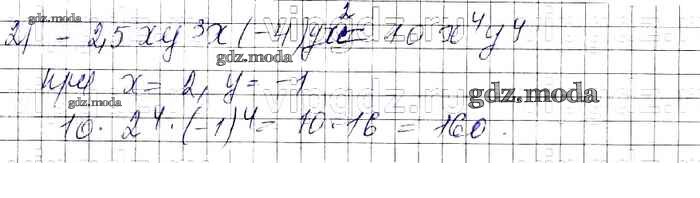 2) - 2,5 xy³x(-4)yx² = 10 x⁴y⁴
при x = 2, y = -1
10 · 2⁴ · (-1)⁴ = 10 · 16 = 160.
gdz.moda
gdz.moda
gdz.moda
gdz.moda